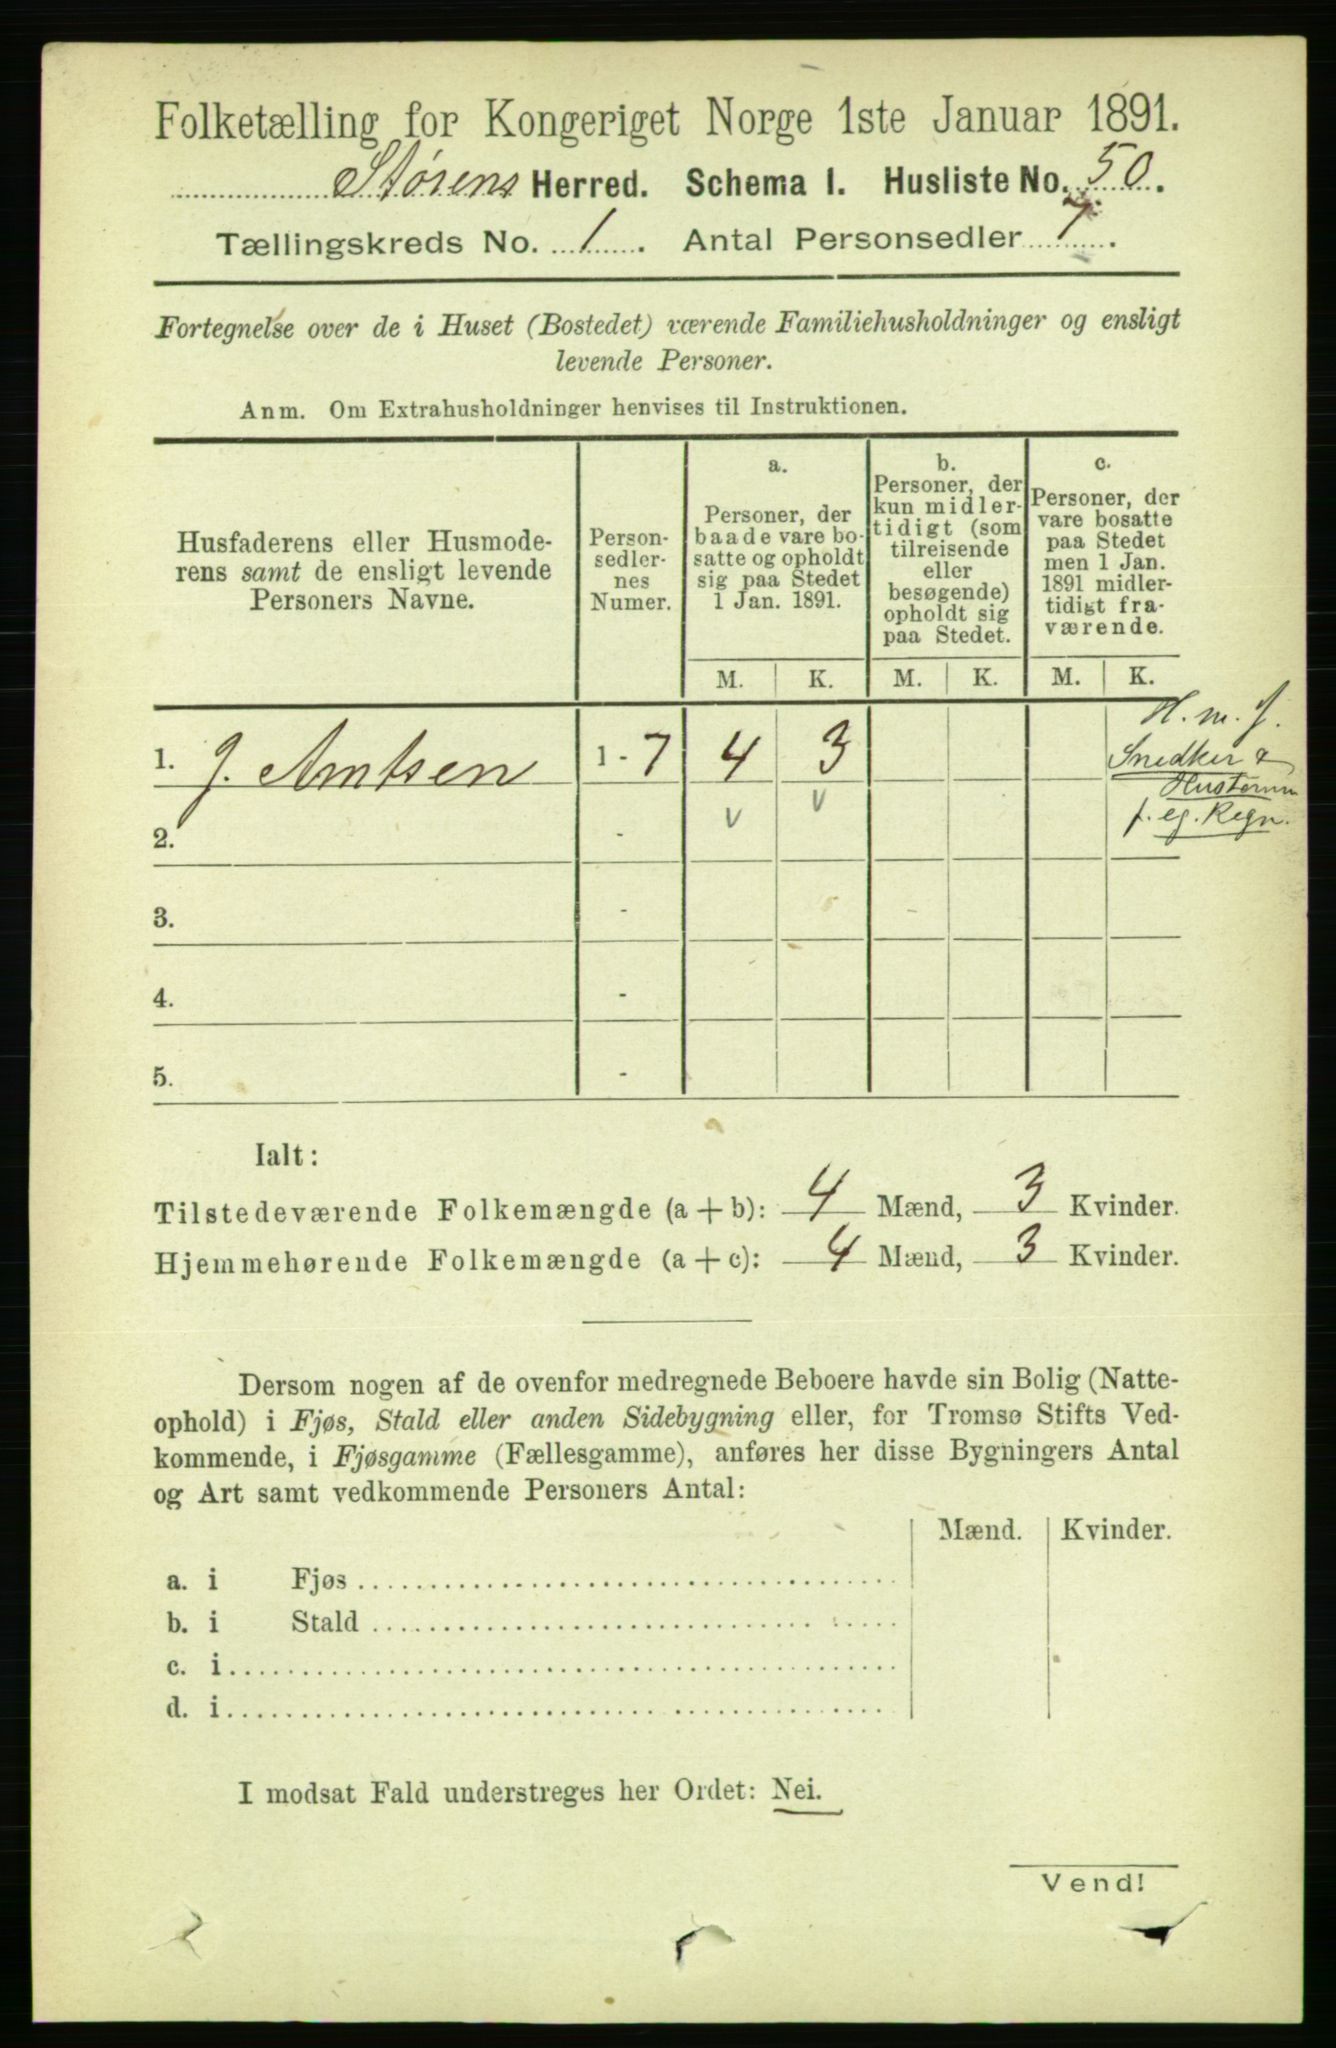 Folketælling for Kongeriget Norge 1ste Januar 1891.
Størens Herred. Schema I. Husliste No. 50.
Tællingskreds No. 1. Antal Personsedler 7.
Fortegnelse over de i Huset (Bostedet) værende Familiehusholdninger og ensligt
levende Personer.
Anm. Om Extrahusholdninger henvises til Instruktionen.
Husfaderens eller Husmode-
rens samt de ensligt levende
Personers Navne.
Person-
sedler-
nes
Numer.
a.
Personer, der
baade vare bo-
satte og opholdt
sig paa Stedet
1 Jan. 1891.
b.
Personer, der
kun midler-
tidigt (som
tilreisende
eller
besøgende)
opholdt sig
paa Stedet.
c.
Personer, der
vare bosatte
paa Stedet
men 1 Jan.
1891 midler-
tidigt fra-
værende.
M. K. M. K. M. K.
1. J. Arntsen 1 - 7 4 3
H. m. J.
Snedker &
f. eg. Regn.
2. -
3. -
4. -
5. -
Ialt:
Tilstedeværende Folkemængde (a + b): 4 Mænd, 3 Kvinder.
Hjemmehørende Folkemængde (a + c): 4 Mænd, 3 Kvinder.
Dersom nogen af de ovenfor medregnede Beboere havde sin Bolig (Natte-
ophold) i Fjøs, Stald eller anden Sidebygning eller, for Tromsø Stifts Ved-
kommende, i Fjøsgamme (Fællesgamme), anføres her disse Bygningers Antal
og Art samt vedkommende Personers Antal:
Mænd. Kvinder.
a. i Fjøs
b. i Stald
c. i
d. i
I modsat Fald understreges her Ordet: Nei.
Vend!